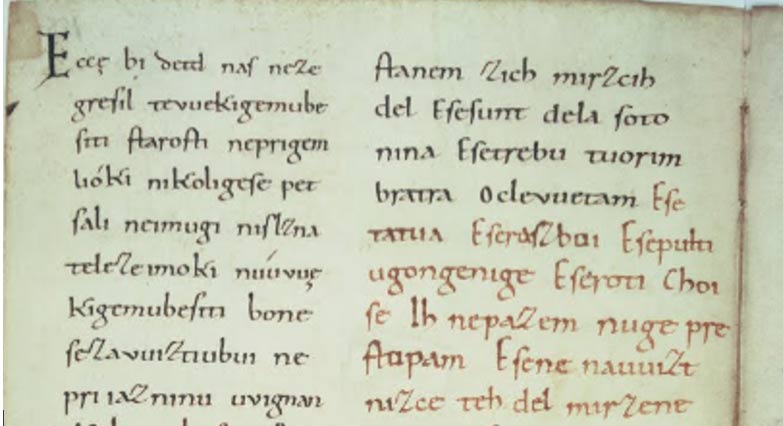 Eccę bi detd naſ neze
greſil tevuekigemube
ſiti ſtaroſti neprigem
lióki nikoligeſe pet
ſali neimugi niſlzna
teleze imoki núúvuę
kigemubeſiti bone
ſezavuiztiubui ne
priiazninu uvignan
ſtanem zich mirzcih
del Eſeſunt dela ſoto
nina Eſetrebu tuorim
bratra Oclevuetam Eſe
tatua Eſerazboi Eſepulti
ugongenige Eſeroti Choi
ſe Ih nepazem nuge pre
ſtupam Eſene nauuizt
nizce teh del mirzene